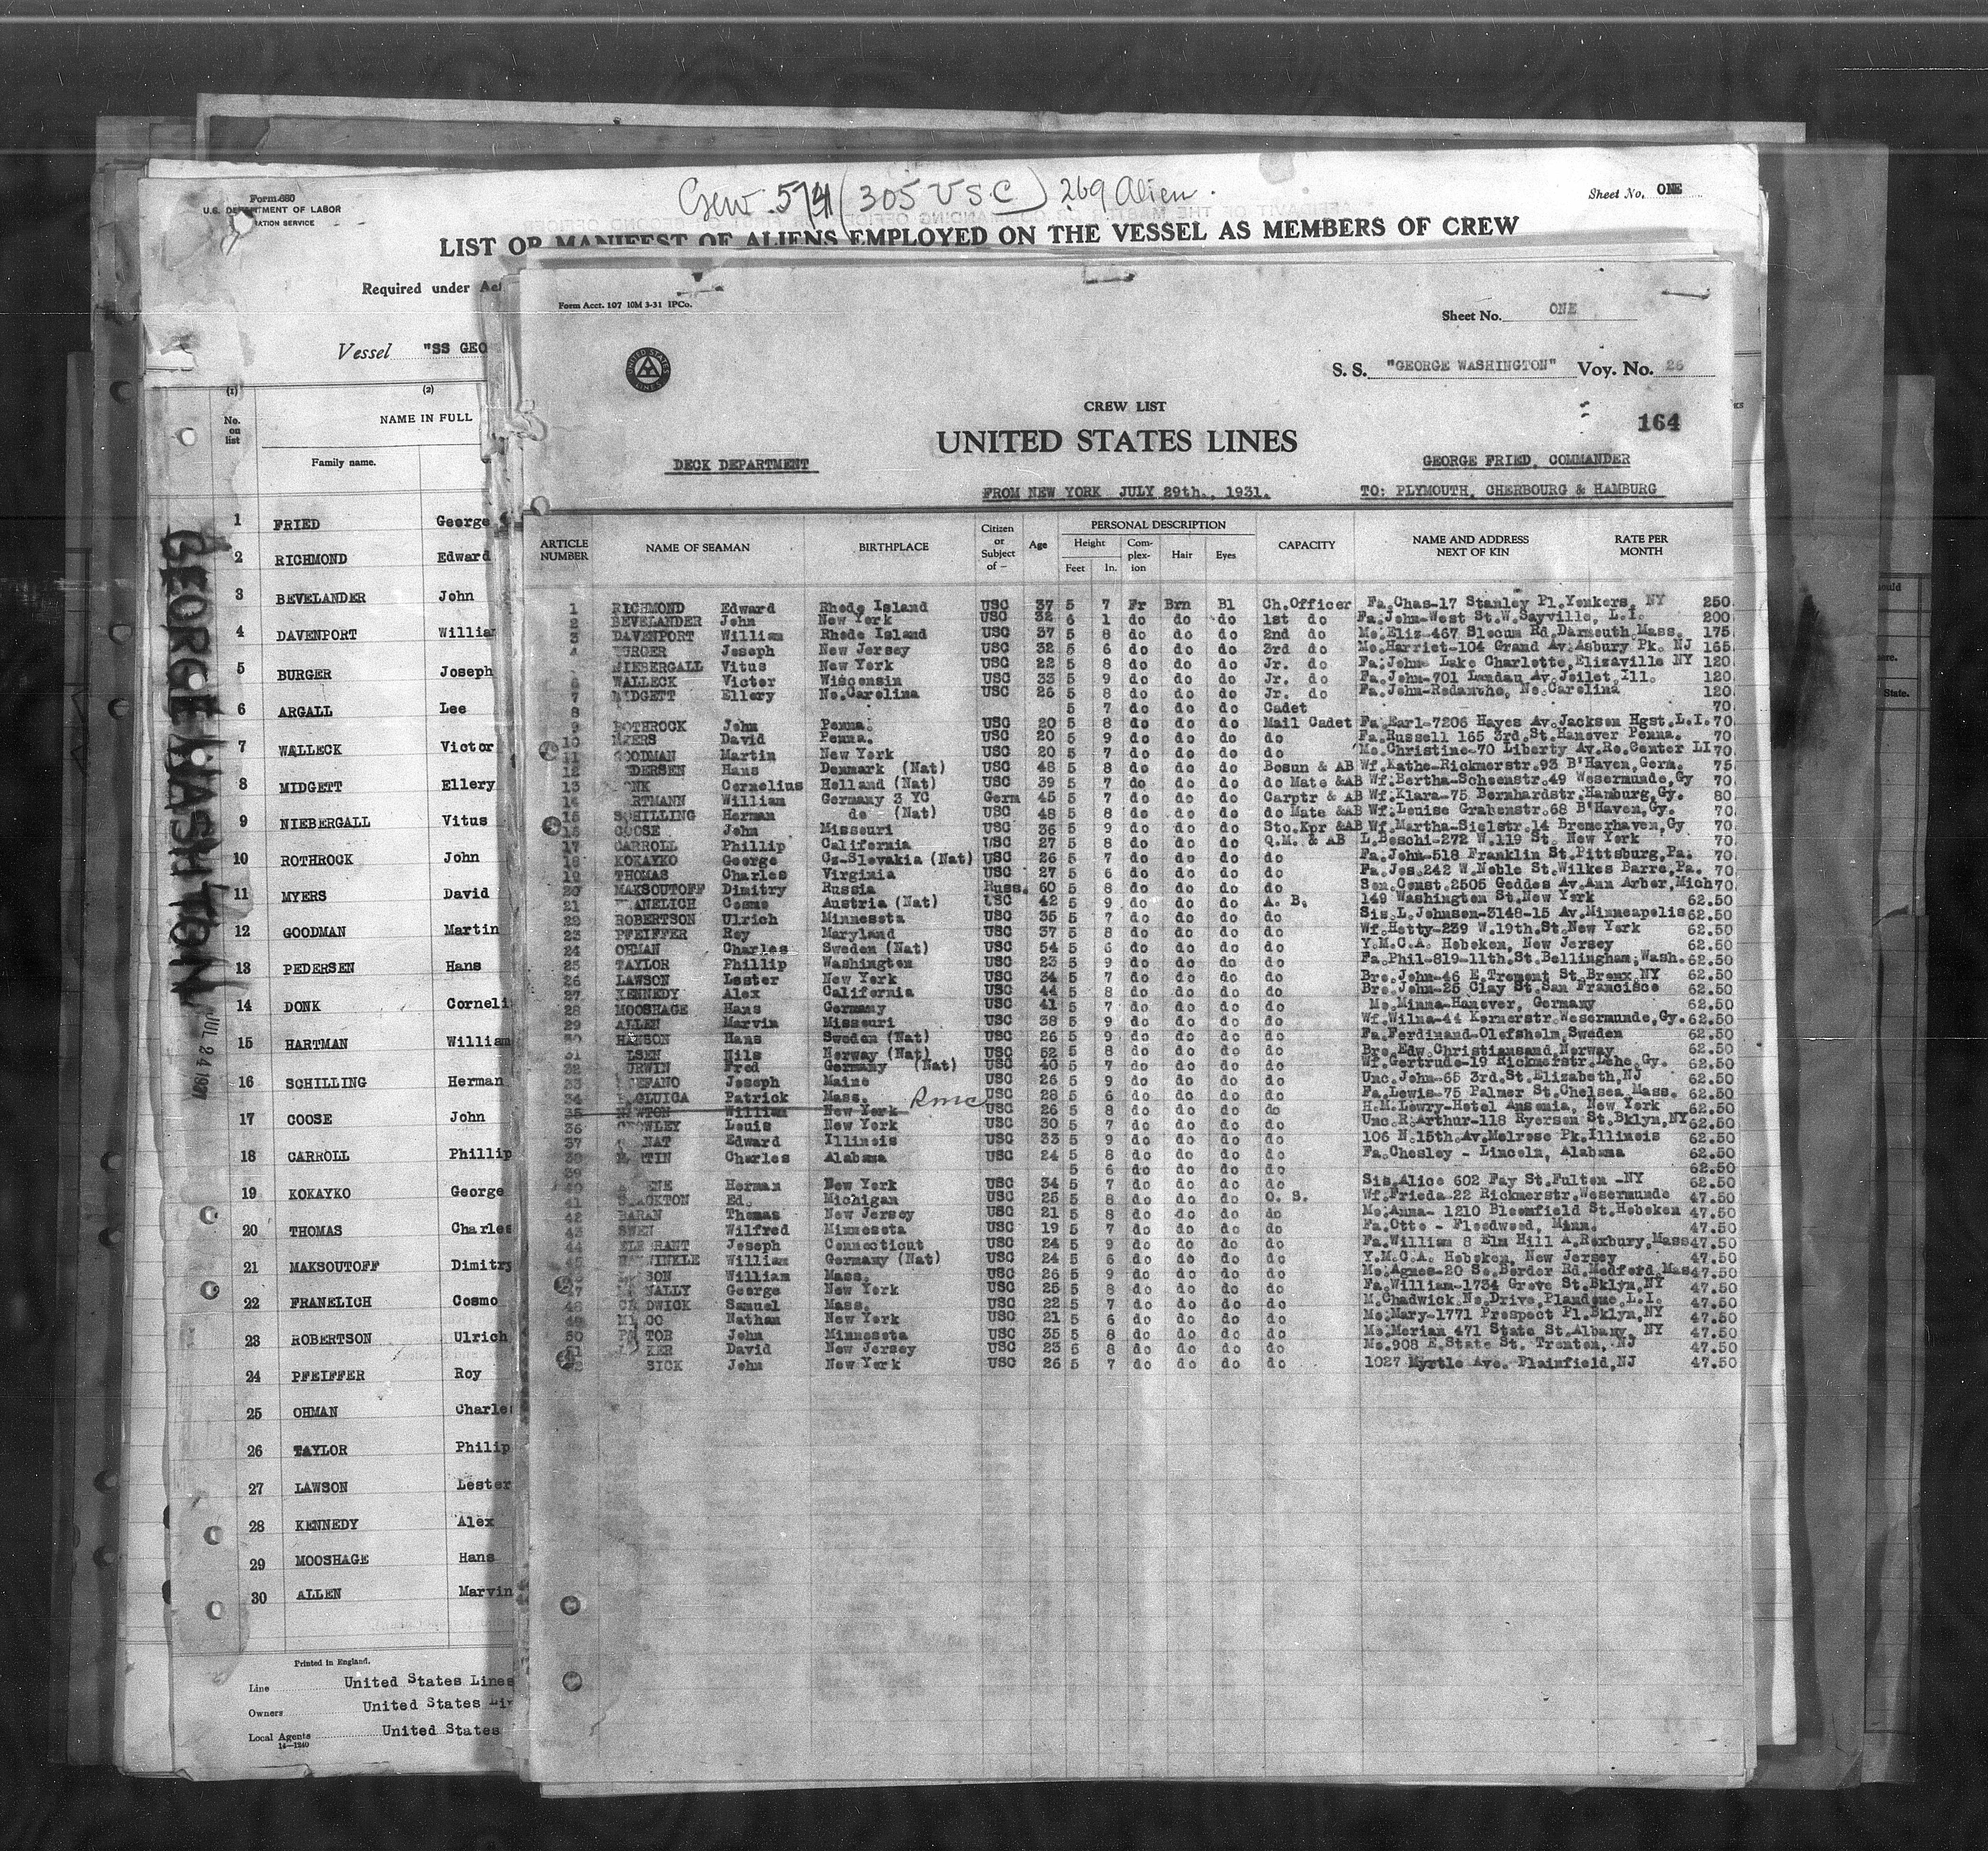 Crew 574 (305 U S C) 269 Alien.
Form 680
U.S. DEPARTMENT OF LABOR
Sheet No. ONE
LIST OR MANIFEST OF ALIENS EMPLOYED ON THE VESSEL AS MEMBERS OF CREW
Required under
Vessel "SS GEO
(1) (2)
No. on list
NAME IN FULL
Family name.
1 FRIED George
2 RICHMOND Edward
3 BEVELANDER John
4 DAVENPORT William
5 BURGER Joseph
6 ARGALL Lee
7 WALLECK Victor
8 MIDGETT Ellery
9 NIEBERGALL Vitus
10 ROTHROCK John
11 MYERS David
12 GOODMAN Martin
13 PEDERSEN Hans
14 DONK Corneli
15 HARTMAN William
16 SCHILLING Herman
17 COOSE John
18 CARROLL Phillip
19 KOKAYKO George
20 THOMAS Charles
21 MAKSOUTOFF Dimitry
22 FRANELICH Cosmo
23 ROBERTSON Ulrich
24 PFEIFFER Roy
25 OHMAN Charles
26 TAYLOR Philip
27 LAWSON Lester
28 KENNEDY Alex
29 MOOSHAGE Hans
30 ALLEN Marvin
Printed in England.
Line United States Lines
Owners United States Li
Local Agents United States
14—1240
GEORGE WASHITON
Form Acct. 107 10M 3-31 IPCo.
Sheet No. ONE
UNITED STATES LINES
S. S. "GEORGE WASHINGTON" Voy. No. 26
CREW LIST
164
UNITED STATES LINES
DECK DEPARTMENT
GEORGE FRIED, COMMANDER
FROM NEW YORK JULY 29th., 1931.
TO: PLYMOUTH, CHERBOURG & HAMBURG
ARTICLE NUMBER
NAME OF SEAMAN
BIRTHPLACE
Citizen or Subject of —
Age
PERSONAL DESCRIPTION
Height
Feet In.
Complexion
Hair
Eyes
CAPACITY
NAME AND ADDRESS NEXT OF KIN
RATE PER MONTH
1 RICHMOND Edward Rhode Island USC 37 5 7 Fr Brn Bl Ch.Officer Fa.Chas-17 Stanley Pl.Yonkers, NY 250
2 BEVELANDER John New York USC 32 6 1 do do do 1st do Fa.John-West St.W.Sayville, L.I. 200
3 DAVENPORT William Rhode Island USC 37 5 8 do do do 2nd do Mo.Eliz-467 Slocum Rd.Darmouth,Mass. 175
4 BURGER Joseph New Jersey USC 32 5 6 do do do 3rd do Mo.Harriet-104 Grand Av.Asbury Pk. NJ 165
NIEBERGALL Vitus New York USC 22 5 8 do do do Jr. do Fa.John- Lake Charlotte,Elizaville NY 120
6 WALLECK Victor Wisconsin USC 33 5 9 do do do Jr. do Fa.John-701 Landau Av.Joilet,Ill. 120
7 MIDGETT Ellery No.Carolina USC 26 5 8 do do do Jr. do Fa.John-Rodanthe, No.Carolina 120
8 5 7 do do do Cadet 70
9 ROTHROCK John Penna. USC 20 5 8 do do do Mail Cadet Fa.Earl-7206 Hayes Av.Jackson Hgst.L.I. 70
10 MYERS David Penna. USC 20 5 9 do do do do Fa.Russell 165 3rd.St.Hanover Penna. 70
11 GOODMAN Martin New York USC 20 5 7 do do do do Mo.Christine-70 Liberty Av.Ro.Center LI 70
12 DERSEN Hans Denmark (Nat) USC 48 5 8 do do do Bosun & AB Wf.Kathe-Rickmerstr.93 B'Haven,Germ. 75
13 NK Cornelius Holland (Nat) USC 39 5 7 do do do do Mate &AB Wf.Bertha-Schoenstr.49 Wesermunde,Gy 70
14 RTMANN William Germany 3 YC Germ 45 5 7 do do do Carptr & AB Wf.Klara-75 Bernhardstr.Hamburg,Gy. 80
15 SCHILLING Herman do (Nat) USC 48 5 8 do do do do Mate &AB Wf.Louise Grabenstr.68 B'Haven,Gy. 70
16 COOSE John Missouri USC 36 5 9 do do do Sto.Kpr &AB Wf.Martha-Sielstr.14 Bremerhaven,Gy 70
17 CARROLL Phillip California USC 27 5 8 do do do Q.M. & AB L.Boschi-272 W.119 St. New York 70
18 KOKAYKO George Cz-Slovakia (Nat) USC 26 5 7 do do do do Fa.John-518 Franklin St.Pittsburg,Pa. 70
19 THOMAS Charles Virginia USC 27 5 6 do do do do Fa.Jos.242 W.Noble St.Wilkes Barre,Pa. 70
20 MAKSOUTOFF Dimitry Russia Russ. 60 5 8 do do do do Son.Const.2505 Geddes Av.Ann Arbor,Mich 70
21 ANELICH Cosmo Austria (Nat) USC 42 5 9 do do do A. B. 149 Washington St.New York 62.50
22 ROBERTSON Ulrich Minnesota USC 35 5 7 do do do do Sis.L.Johnson-3148-15 Av.Minneapolis 62.50
23 PFEIFFER Roy Maryland USC 37 5 8 do do do do Wf.Hetty-239 W.19th.St.New York 62.50
24 OHMAN Charles Sweden (Nat) USC 54 5 6 do do do do Y.M.C.A. Hoboken, New Jersey 62.50
25 TAYLOR Phillip Washington USC 23 5 9 do do do do Fa.Phil-819-11th.St.Bellingham,Wash. 62.50
26 LAWSON Lester New York USC 34 5 7 do do do do Bro.John-46 E.Tremont St.Bronx NY 62.50
27 KENNEDY Alex California USC 44 5 8 do do do do Bro.John-25 Clay St.San Francisco 62.50
28 MOOSHAGE Hans Germany USC 41 5 7 do do do do Mo.Minna-Hanover, Germany 62.50
29 ALLEN Marvin Missouri USC 38 5 9 do do do do Wf.Wilna-44 Kornerstr.Wesermunde,Gy. 62.50
30 HANSON Hans Sweden (Nat) USC 26 5 9 do do do do Fa.Ferdinand-Olofsholm,Sweden 62.50
31 LSEN Nils Norway (Nat) USC 52 5 8 do do do do Bro.Edw.Christiansand,Norway 62.50
32 URWIN Fred Germany (Nat) USC 40 5 7 do do do do Wf.Gertrude-19 Rickmerstr.Lehe,Gy. 62.50
33 EFANO Joseph Maine USC 26 5 9 do do do do Unc.John-65 3rd.St.Elizabeth,NJ 62.50
34 GLUICA Patrick Mass. USC 28 5 6 do do do do Fa.Lewis-75 Palmer St.Chelsea,Mass. 62.50
35 NEWTON William New York USC 26 5 8 do do do do H.M.Lowry-Hotel Ansonia, New York 62.50
36 CROWLEY Louis New York USC 30 5 7 do do do do Unc.R.Arthur-118 Ryerson St.Bklyn,NY 62.50
37 NAT Edward Illinois USC 33 5 9 do do do do 106 N.15th.Av.Melrose Pk.Illinois 62.50
38 MARTIN Charles Alabama USC 24 5 8 do do do do Fa.Chesley - Lincoln, Alabama 62.50
39 5 6 do do do do 62.50
40 ENE Herman New York USC 34 5 7 do do do do Sis.Alice 602 Fay St.Fulton -NY 62.50
41 STOCKTON Ed. Michigan USC 25 5 8 do do do O. S. Wf.Frieda-22 Rickmerstr.Wesermunde 47.50
42 BARAN Thomas New Jersey USC 21 5 8 do do do do Mo.Anna- 1210 Bloomfield St.Hoboken 47.50
43 SWEN Wilfred Minnesota USC 19 5 7 do do do do Fa.Otto - Floodwood, Minn. 47.50
44 RANT Joseph Connecticut USC 24 5 9 do do do do Fa.William 8 Elm Hill A.Roxbury,Mass 47.50
45 WINKLE William Germany (Nat) USC 24 5 6 do do do do Y.M.C.A. Hoboken, New Jersey 47.50
SON William Mass. USC 26 5 9 do do do do Mo.Agnes-20 So.Border Rd.Medford,Mas 47.50
47 NALLY George New York USC 25 5 8 do do do do Fa.William-1734 Grove St.Bklyn,NY 47.50
48 CHADWICK Samuel Mass. USC 22 5 7 do do do do M.Chadwick No.Drive,Plandome,L.I. 47.50
49 CO Nathan New York USC 21 5 6 do do do do Mo.Mary-1771 Prospect Pl.Bklyn,NY 47.50
50 TOR John Minnesota USC 35 5 8 do do do do Mo.Morian 471 State St.Albany, NY 47.50
51 KER David New Jersey USC 23 5 8 do do do do Mo.908 E.State St. Trenton, NJ 47.50
52 SICK John New York USC 26 5 7 do do do do 1027 Myrtle Ave. Plainfield,NJ 47.50